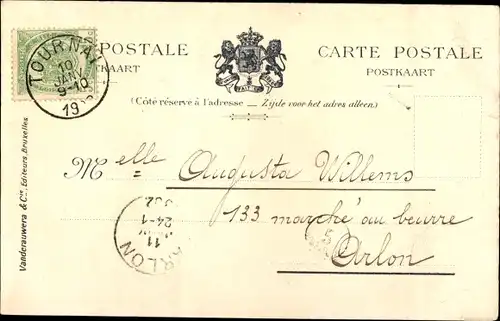 POSTALE
KAART
CARTE POSTALE
POSTKAART
(Côté réservé à l'adresse — Zijde voor het adres alleen.)
TOURNAI
10
JANV
9-10
19
Melle Augusta Willems
133 marché au beurre
Arlon
ARLON
11
24-1
5
Vanderauwera & Cie, Editeurs, Bruxelles